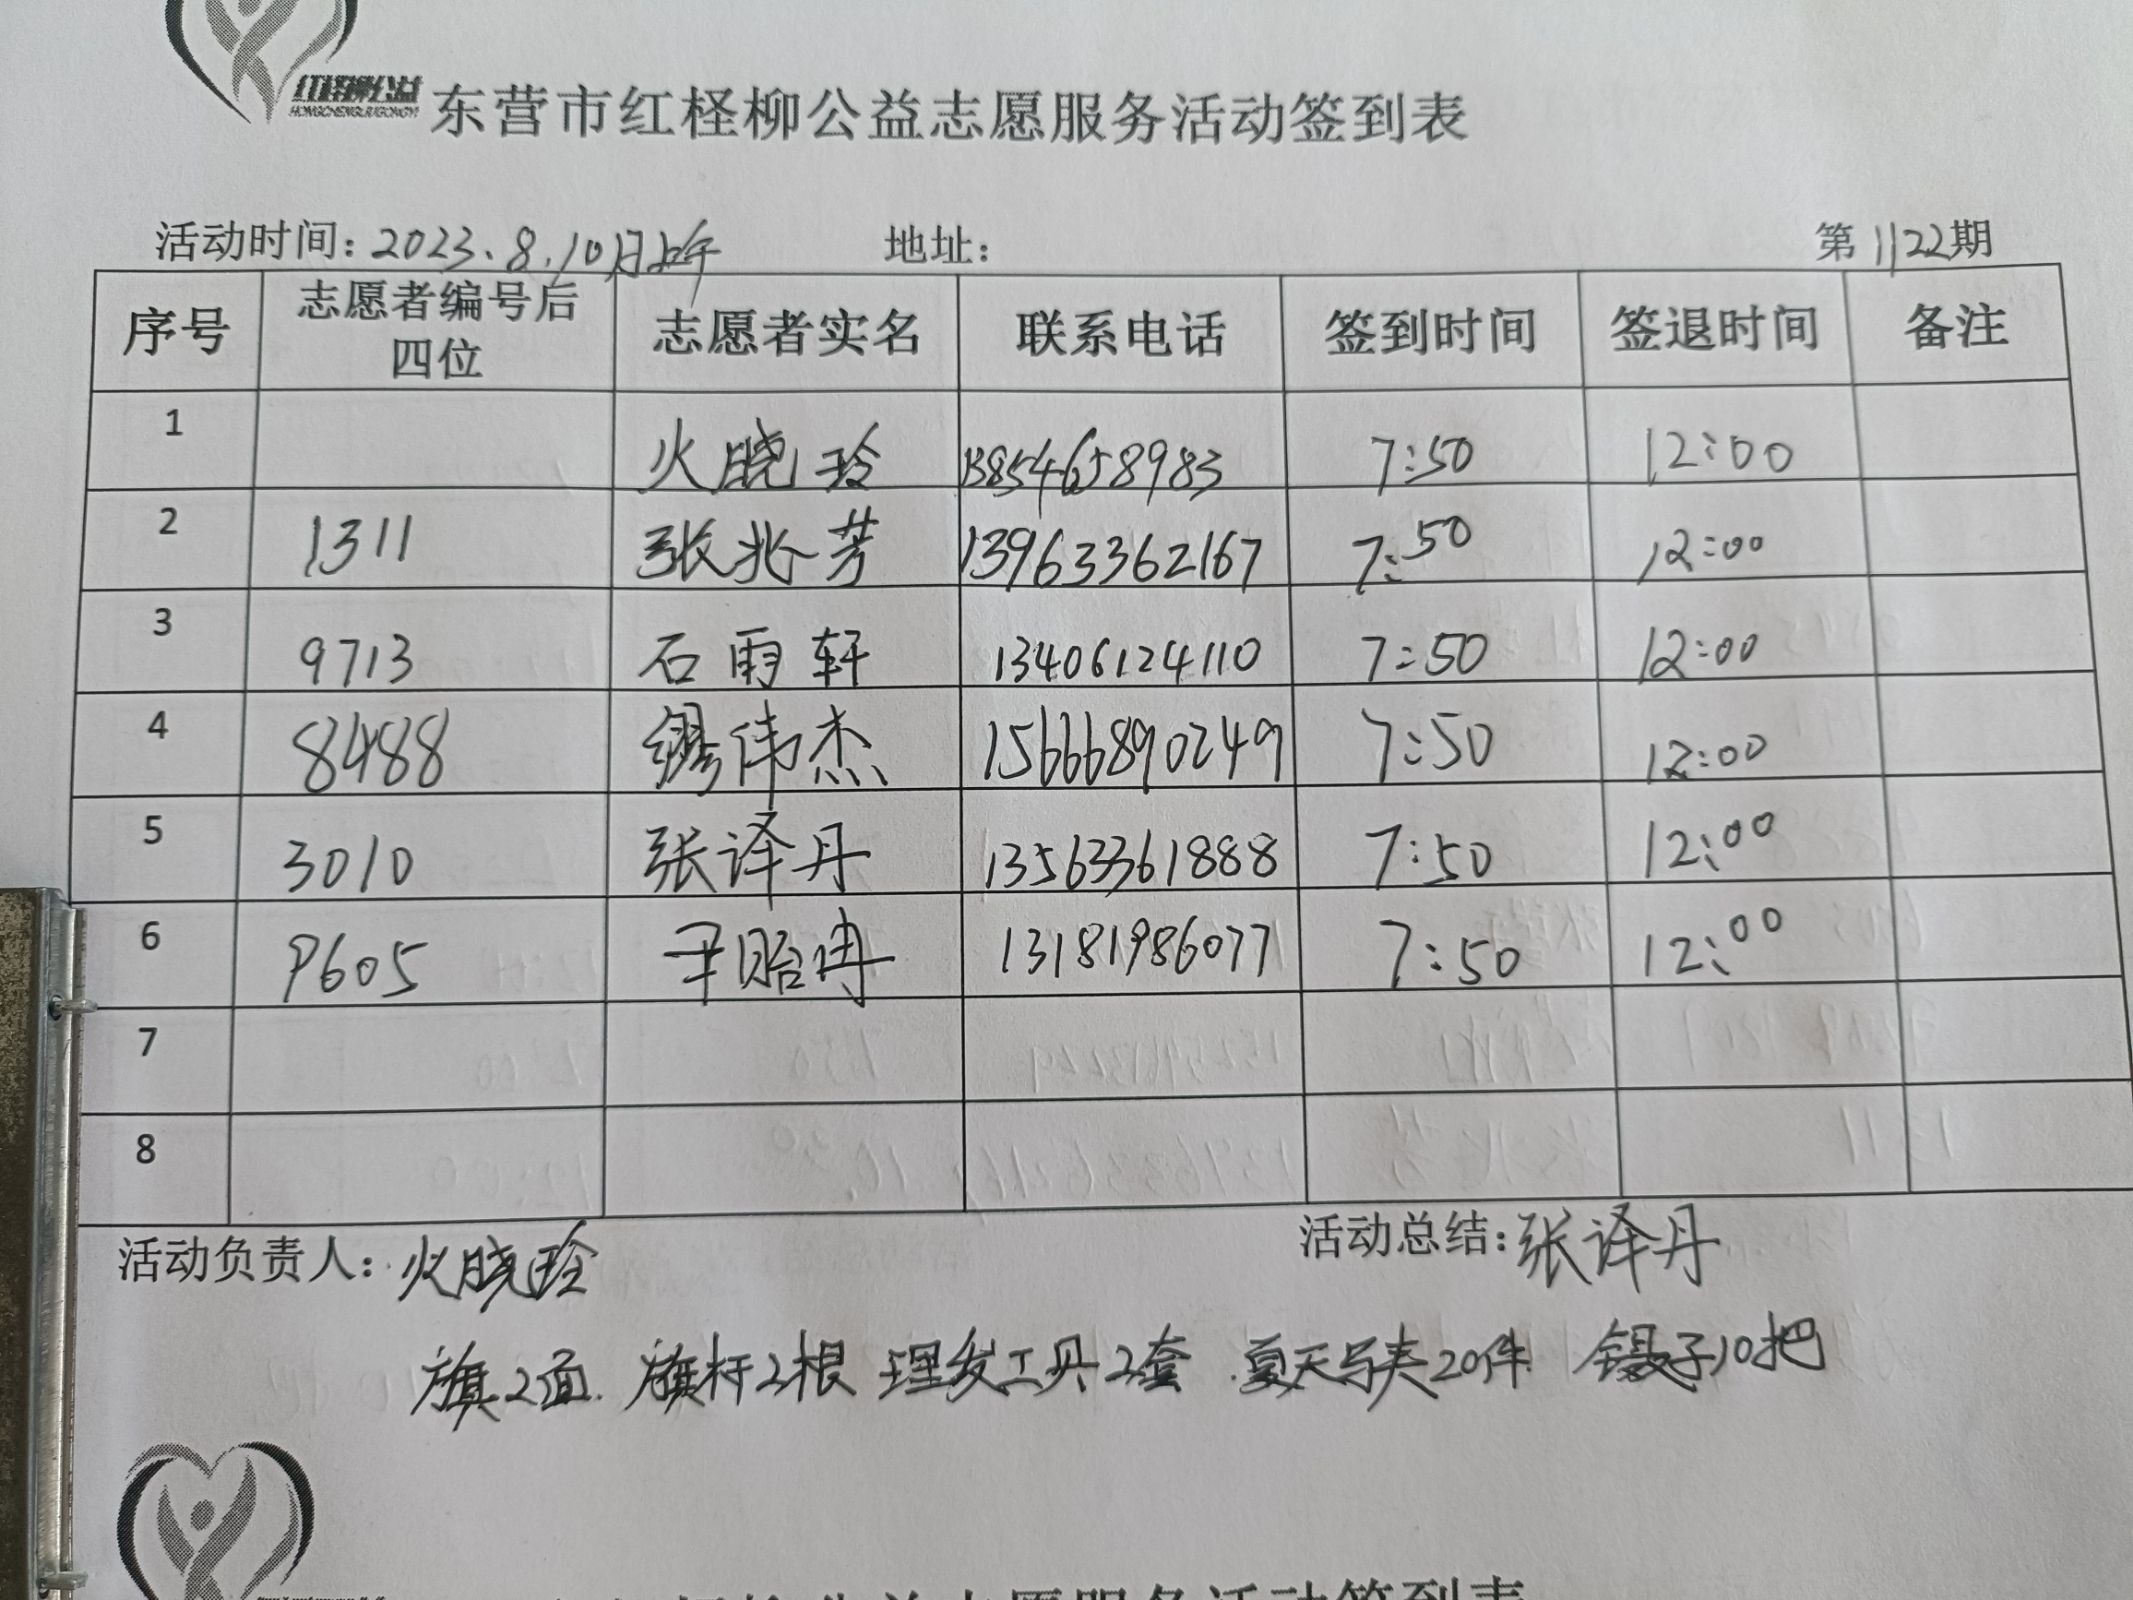 红柽柳公益
HONGCHENGLIUGONGYI
东营市红柽柳公益志愿服务活动签到表
活动时间：2023.8.10日上午 地址： 第1122期
序号 志愿者编号后四位 志愿者实名 联系电话 签到时间 签退时间 备注
1 火晓玲 13854658983 7:50 12:00
2 1311 张兆芳 13963362167 7:50 12:00
3 9713 石雨轩 13406124110 7:50 12:00
4 8488 缪伟杰 15666890249 7:50 12:00
5 3010 张译丹 13563361888 7:50 12:00
6 P605 尹贻冉 13181986077 7:50 12:00
7
8
活动负责人：火晓玲 活动总结：张译丹
旗2面. 旗杆2根 理发工具2套 夏天马夹20件 镊子10把